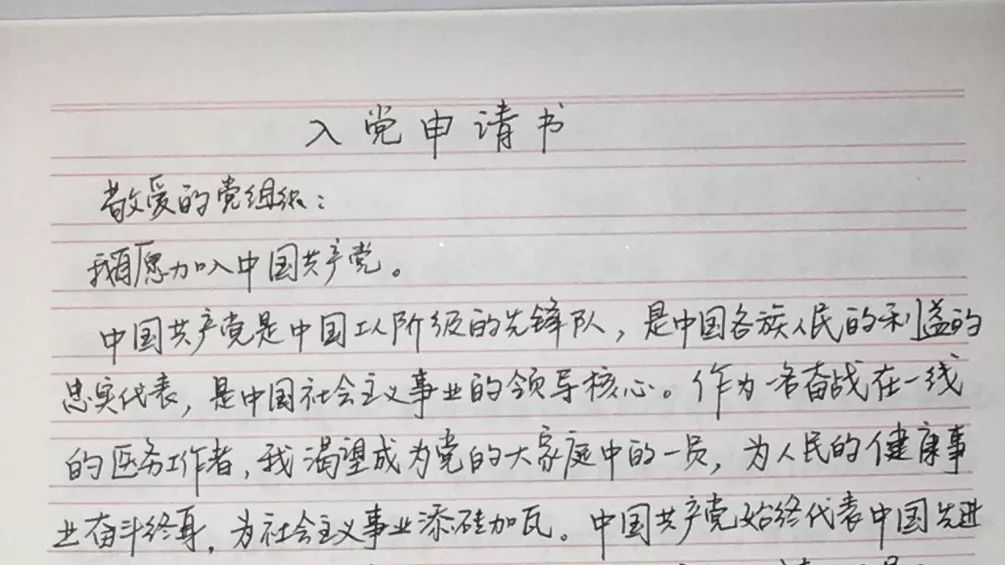 入党申请书
敬爱的党组织：
我自愿加入中国共产党。
中国共产党是中国工人阶级的先锋队，是中国各族人民的利益的
忠实代表，是中国社会主义事业的领导核心。作为一名奋战在一线
的医务工作者，我渴望成为党的大家庭中的一员，为人民的健康事
业奋斗终身，为社会主义事业添砖加瓦。中国共产党始终代表中国先进